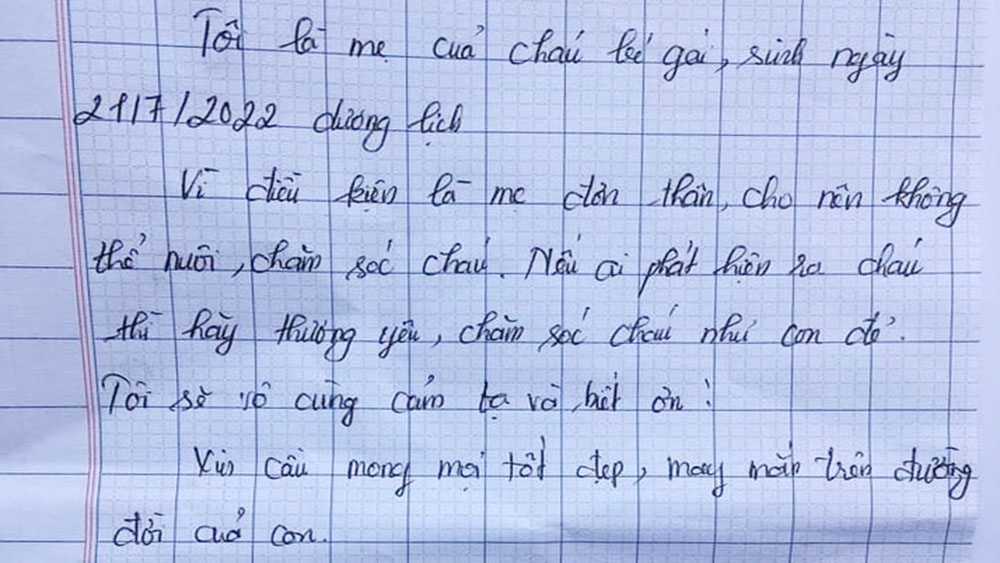 Tôi là mẹ của cháu bé gái, sinh ngày
21/7/2022 dương lịch
Vì điều kiện là mẹ đơn thân, cho nên không
thể nuôi, chăm sóc cháu. Nếu ai phát hiện ra cháu
thì hãy thương yêu, chăm sóc cháu như con đẻ.
Tôi sẽ vô cùng cảm tạ và biết ơn!
Xin cầu mong mọi tốt đẹp, may mắn trên đường
đời của con.